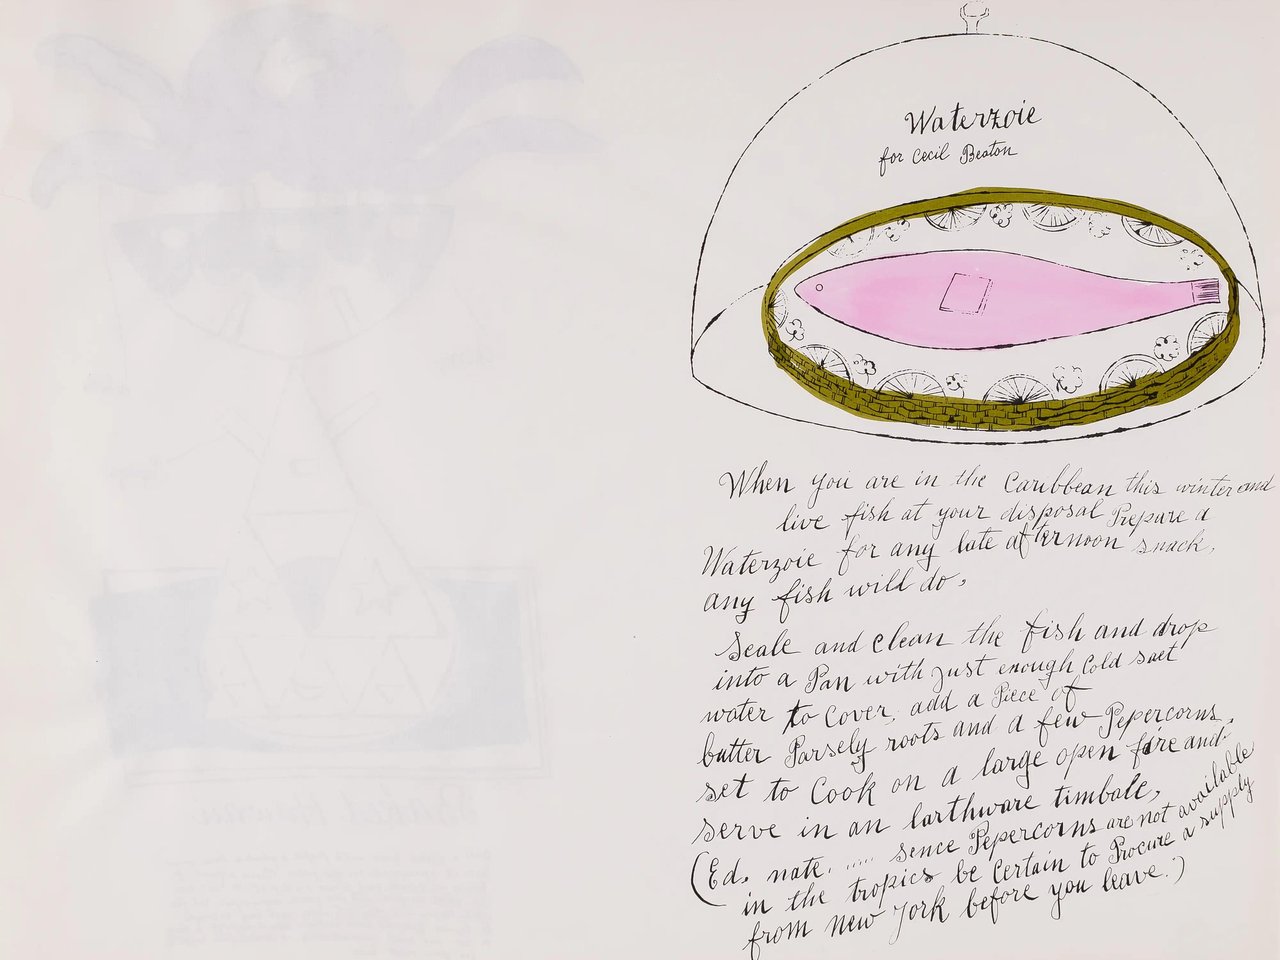 Waterzoie
for Cecil Beaton
When you are in the Caribbean this winter and
live fish at your disposal Prepare a
Waterzoie for any late afternoon snack,
any fish will do,
Scale and Clean the fish and drop
into a Pan with just enough Cold salt
water to Cover, add a Piece of
butter Parsely roots and a few Pepercorns,
set to Cook on a large open fire and
serve in an earthware timbale,
(Ed. note. ..... sence Pepercorns are not available
in the tropics be Certain to Procure a supply
from New York before you leave.)